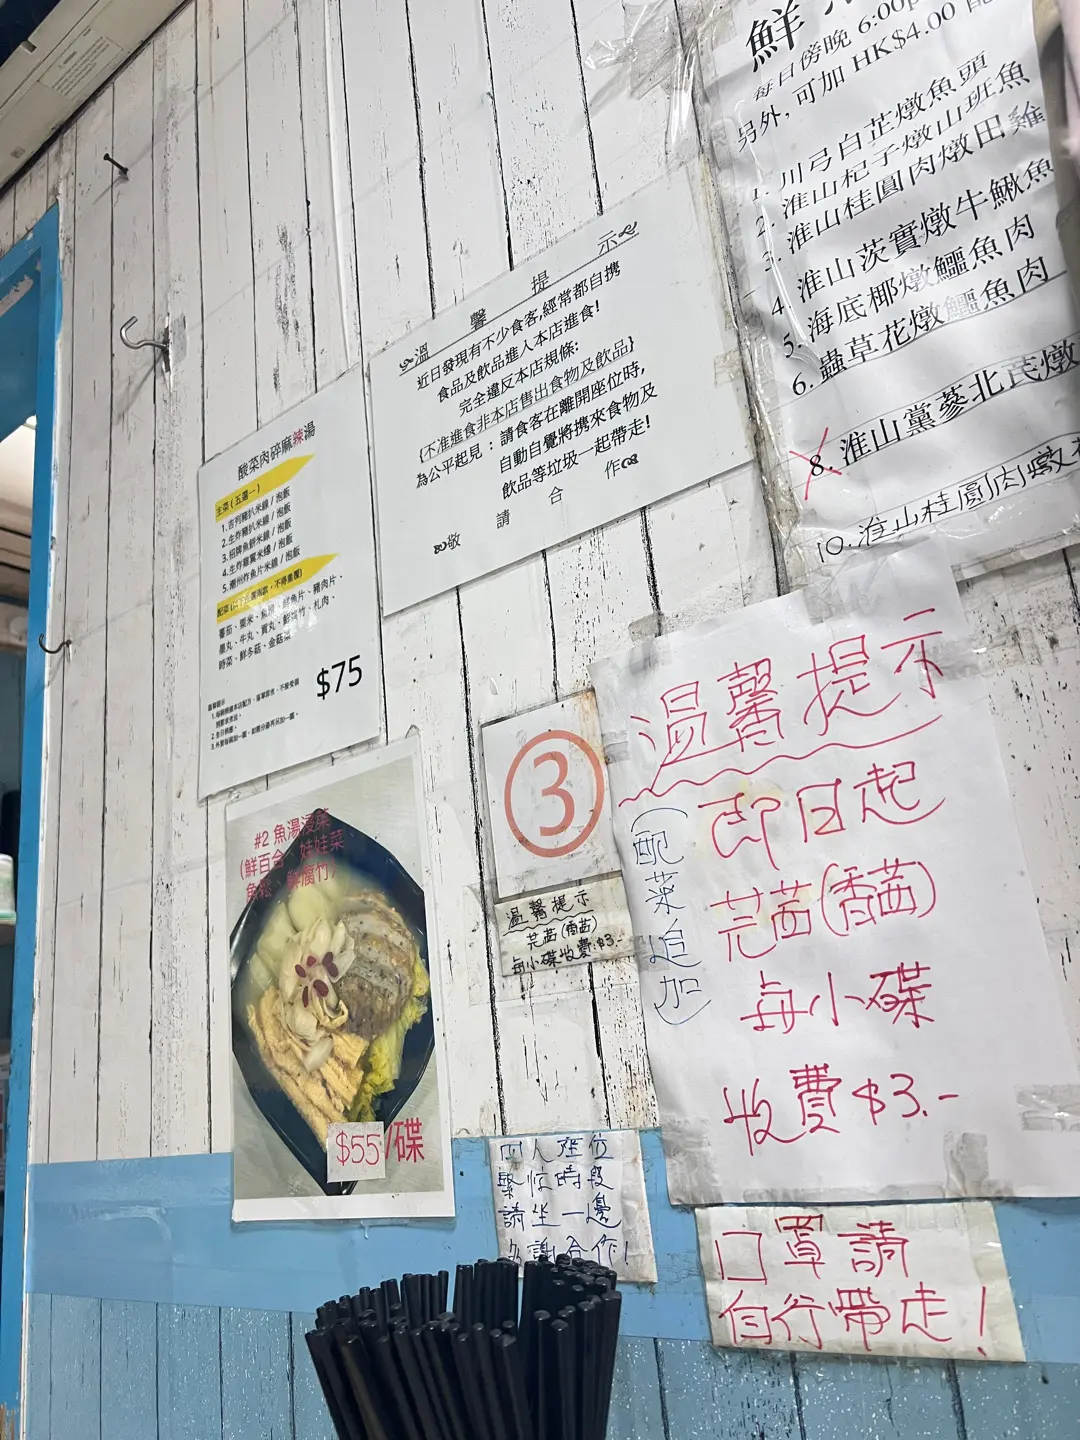 鮮
每日傍晚 6:00p
另外，可加 HK$4.00 配
1. 川弓白芷燉魚頭
2. 淮山杞子燉山班魚
3. 淮山桂圓肉燉田雞
4. 淮山茨實燉牛鰍魚
5. 海底椰燉鱷魚肉
6. 蟲草花燉鱷魚肉
8. 淮山黨蔘北芪燉
10. 淮山桂圓肉燉
溫馨提示
近日發現有不少食客,經常都自携
食品及飲品進入本店進食!
完全違反本店規條:
{不准進食非本店售出食物及飲品}
為公平起見 : 請食客在離開座位時,
自動自覺將携來食物及
飲品等垃圾一起帶走!
敬請合作
酸菜肉碎麻辣湯
主菜 (五選一)
1. 吉列豬扒米線 / 泡飯
2. 生炸豬扒米線 / 泡飯
3. 招牌魚餅米線 / 泡飯
4. 生炸雞翼米線 / 泡飯
5. 潮州炸魚片米線 / 泡飯
墨丸、牛丸、貢丸、鮮腐竹、札肉、
時菜、鮮冬菇、金菇菜
$75
#2 魚湯浸菜
(鮮百合、娃娃菜
鮮腐竹)
$55/碟
3
溫馨提示
芫茜(香茜)
每小碟收費:$3.-
溫馨提示
即日起
芫茜(香茜)
每小碟
收費$3.-
(配菜追加)
四人座位
繁忙時段
請坐一邊
多謝合作!
口罩請
自行帶走!